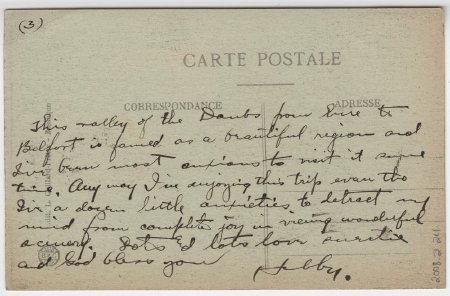 (3)
CARTE POSTALE
CORRESPONDANCE
ADRESSE
This valley of the Doubs from here to
Belfort is famed as a beautiful region and
I've been most anxious to visit it some
time. Any way I'm enjoying this trip even tho
I've a dozen little anxieties to detract my
mind from complete joy in viewing wonderful
scenery. Lots & lots love sweetie
and God bless you
Hubby.